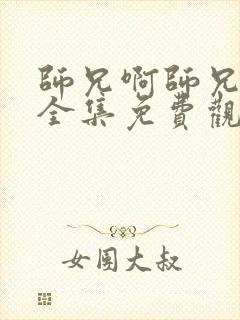 師兄啊師兄
全集免費觀
女團大叔